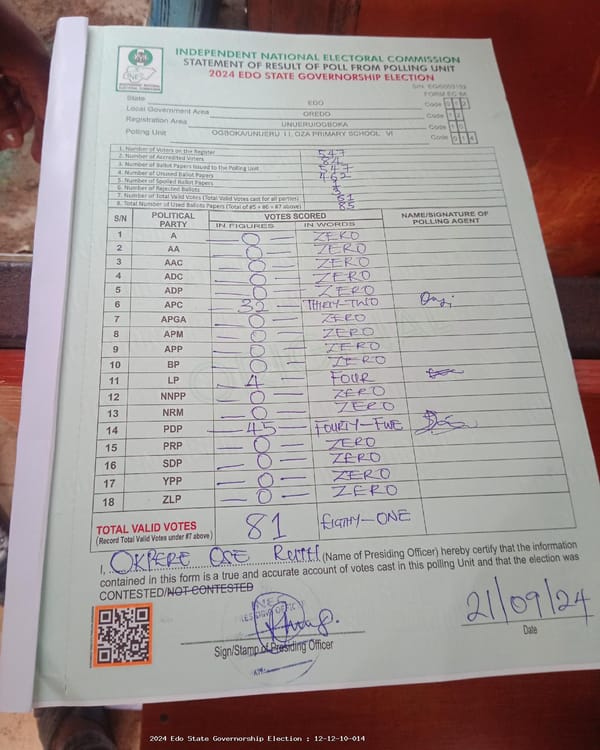 INDEPENDENT NATIONAL ELECTORAL COMMISSION
STATEMENT OF RESULT OF POLL FROM POLLING UNIT
2024 EDO STATE GOVERNORSHIP ELECTION
FORM EC 8A
State EDO Code 0 1 2
Local Government Area OREDO Code 1 2
Registration Area UNUERU/OGBOKA Code 1 0
Polling Unit OGBOKA/UNUERU 11, OZA PRIMARY SCHOOL VI Code 0 1 4
1. Number of Voters on the Register 547
2. Number of Accredited Voters
3. Number of Ballot Papers Issued to the Polling Unit 547
4. Number of Unused Ballot Papers 462
5. Number of Spoiled Ballot Papers
6. Number of Rejected Ballots
7. Number of Total Valid Votes (Total Valid Votes cast for all parties) 81
8. Total Number of Used Ballots Papers (Total of #5 + #6 + #7 above) 85
S/N POLITICAL PARTY VOTES SCORED NAME/SIGNATURE OF POLLING AGENT
IN FIGURES IN WORDS
1 A 0 ZERO
2 AA 0 ZERO
3 AAC 0 ZERO
4 ADC 0 ZERO
5 ADP 0 ZERO
6 APC 32 THIRTY-TWO
7 APGA 0 ZERO
8 APM 0 ZERO
9 APP 0 ZERO
10 BP 0 ZERO
11 LP 4 FOUR
12 NNPP 0 ZERO
13 NRM 0 ZERO
14 PDP 45 FOURTY-FIVE
15 PRP 0 ZERO
16 SDP 0 ZERO
17 YPP 0 ZERO
18 ZLP 0 ZERO
TOTAL VALID VOTES 81 EIGTHY-ONE
(Record Total Valid Votes under #7 above)
I, OKPERE OSE RUTH (Name of Presiding Officer) hereby certify that the information
contained in this form is a true and accurate account of votes cast in this polling Unit and that the election was
CONTESTED/NOT CONTESTED
INEC
PRESIDING OFFICER
21/09/24
Sign/Stamp of Presiding Officer Date
2024 Edo State Governorship Election : 12-12-10-014